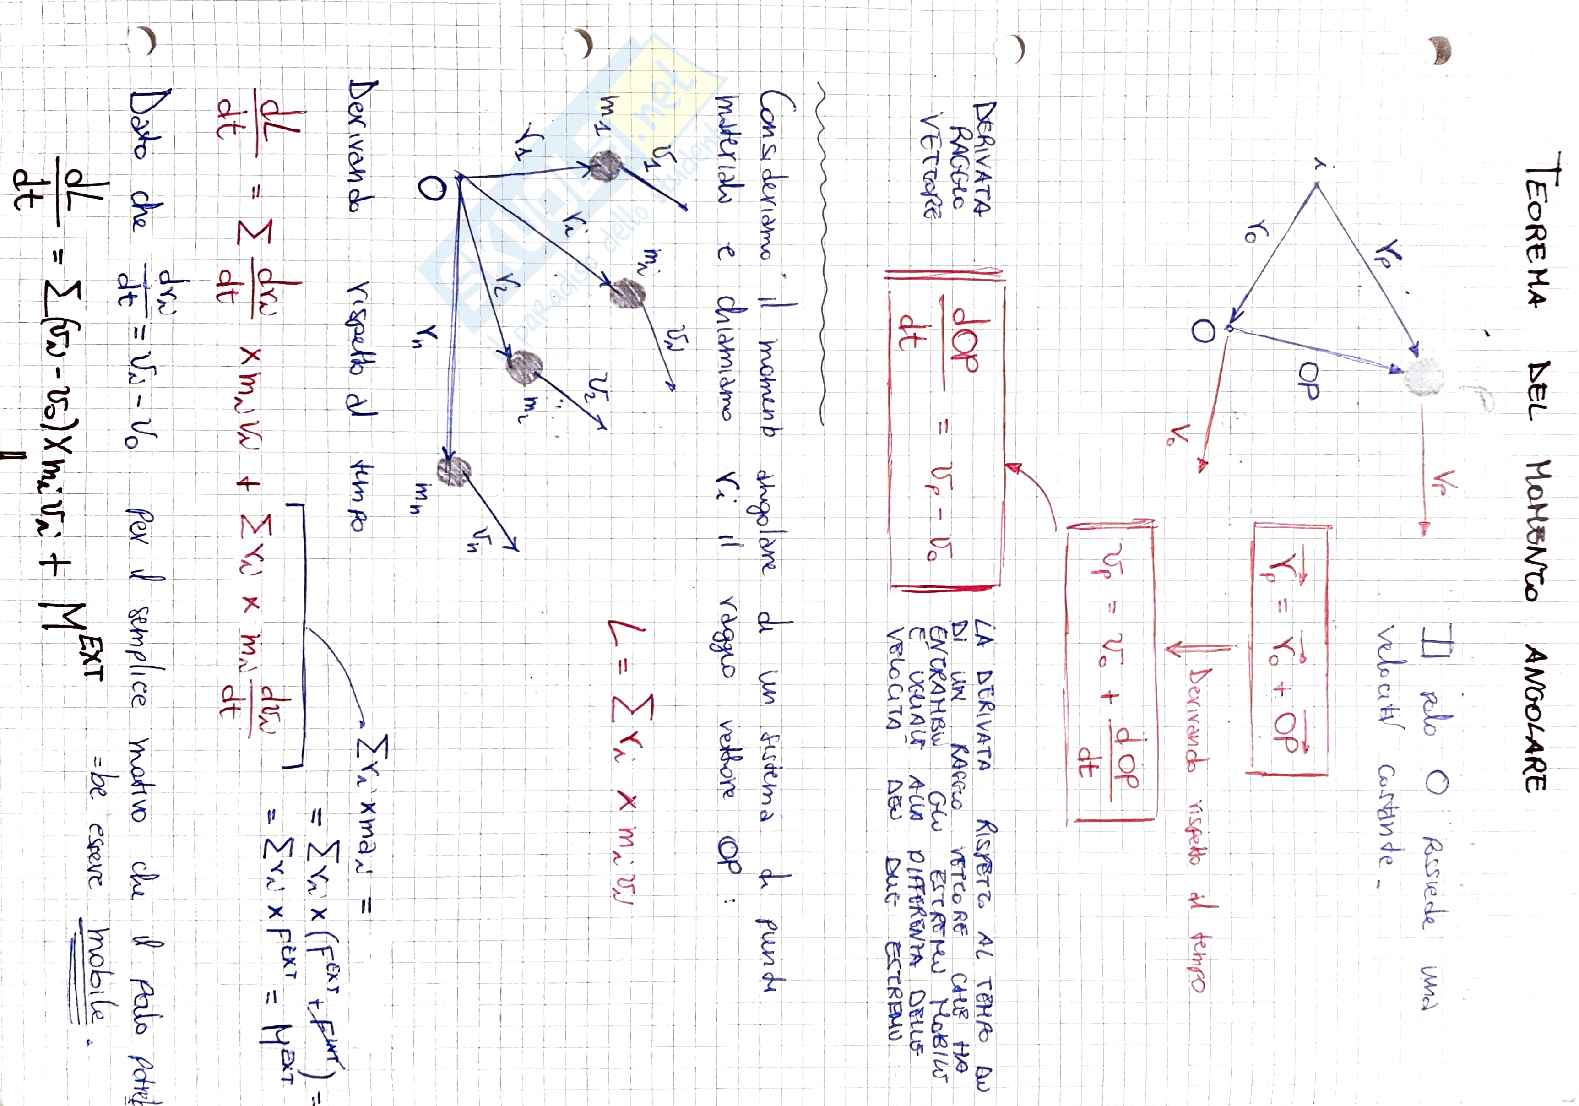 TEOREMA DEL MOMENTO ANGOLARE
i
r₀
rₚ
O
OP
P
v₀
vₚ
Il polo O possiede una
velocità costante.
r⃗ₚ = r⃗₀ + OP⃗
Derivando rispetto al tempo
vₚ = v₀ + dOP/dt
DERIVATA
RAGGIO
VETTORE
dOP/dt = vₚ - v₀
LA DERIVATA RISPETTO AL TEMPO DI
DI UN RAGGIO VETTORE CHE HA
ENTRAMBI GLI ESTREMI MOBILI
È UGUALE ALLA DIFFERENZA DELLE
VELOCITÀ DEI DUE ESTREMI
Consideriamo il momento angolare di un sistema di punti
materiali e chiamiamo rᵢ il raggio vettore OP:
m₁
v₁
r₁
rᵢ
mᵢ
vᵢ
O
r₂
m₂
v₂
rₙ
mₙ
vₙ
L = Σ rᵢ × mᵢvᵢ
Derivando rispetto al tempo
dL/dt = Σ drᵢ/dt × mᵢvᵢ + Σ rᵢ × mᵢ dvᵢ/dt
Σ rᵢ × maᵢ =
= Σ rᵢ × (Fᴱˣᵀ + Fᴵᴺᵀ) =
= Σ rᵢ × Fᴱˣᵀ = Mᴱˣᵀ
Dato che drᵢ/dt = vᵢ - v₀ per il semplice motivo che il polo potreb
=be essere mobile.
dL/dt = Σ(vᵢ - v₀) × mᵢvᵢ + Mᴱˣᵀ
SKUOLA.net
paradiso dello studente